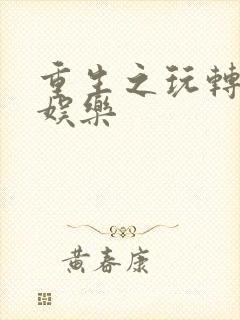 重生之玩轉
娛樂
黃春康